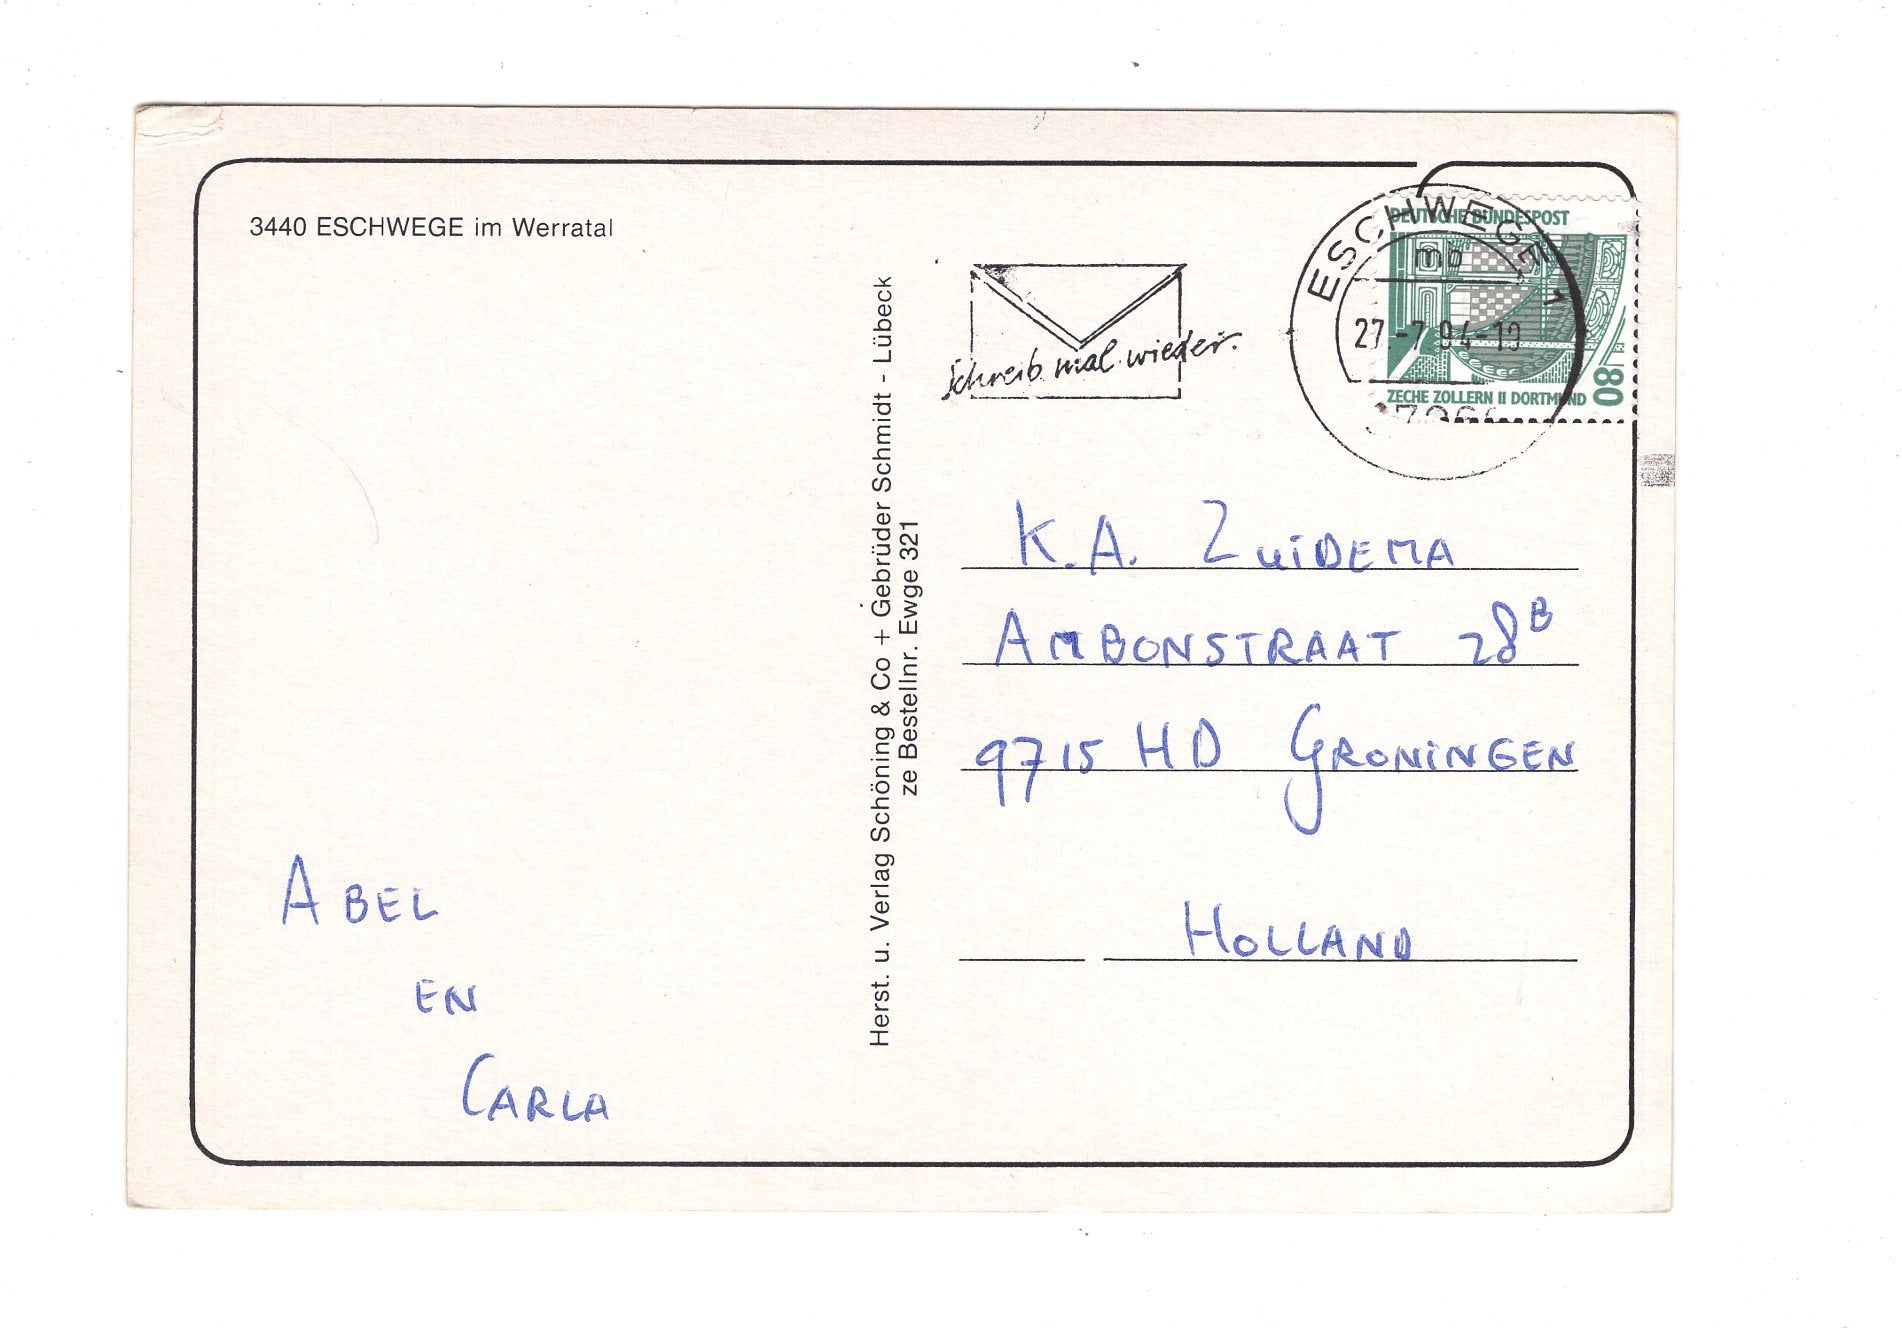 3440 ESCHWEGE im Werratal
Schreib mal wieder.
ESCHWEGE 1
mb
27.-7.94-19
DEUTSCHE BUNDESPOST
ZECHE ZOLLERN II DORTMUND
80
Herst. u. Verlag Schöning & Co + Gebrüder Schmidt - Lübeck
ze Bestellnr. Ewge 321
K.A. ZUiDEMA
AMBONSTRAAT 28B
9715 HD GRONiNGEN
HOLLAND
ABEL
EN
CARLA